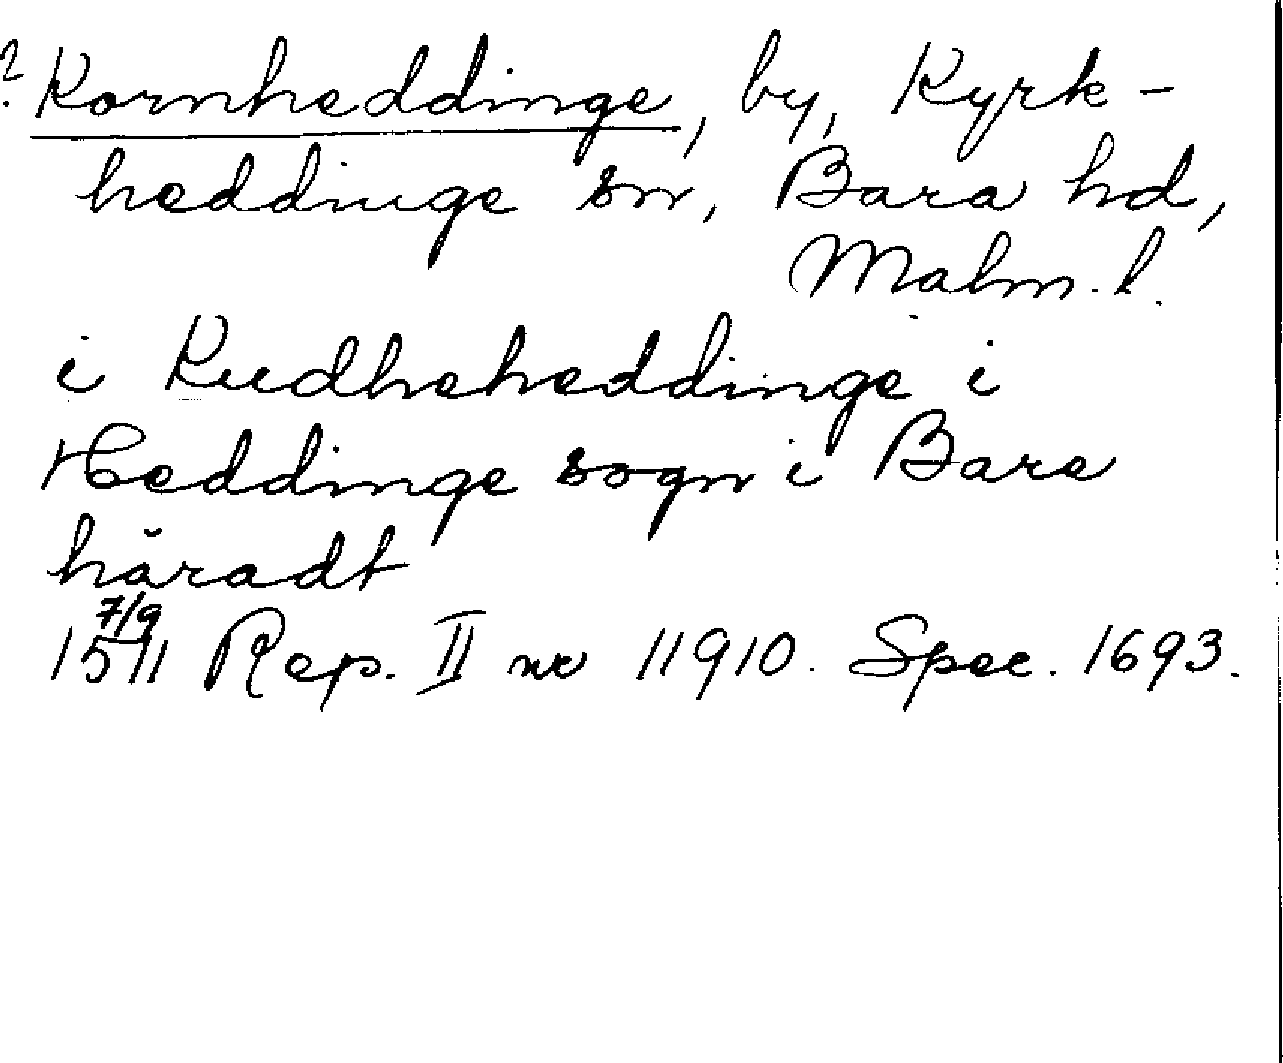 ? Kornheddinge, by, Kyrk-
heddinge sn, Bara hd,
Malm. l.
i Kudheheddinge i
Heddinge sogn i Bare
häradt
7/9
1511 Rep. II nr 11910. Spec. 1693.